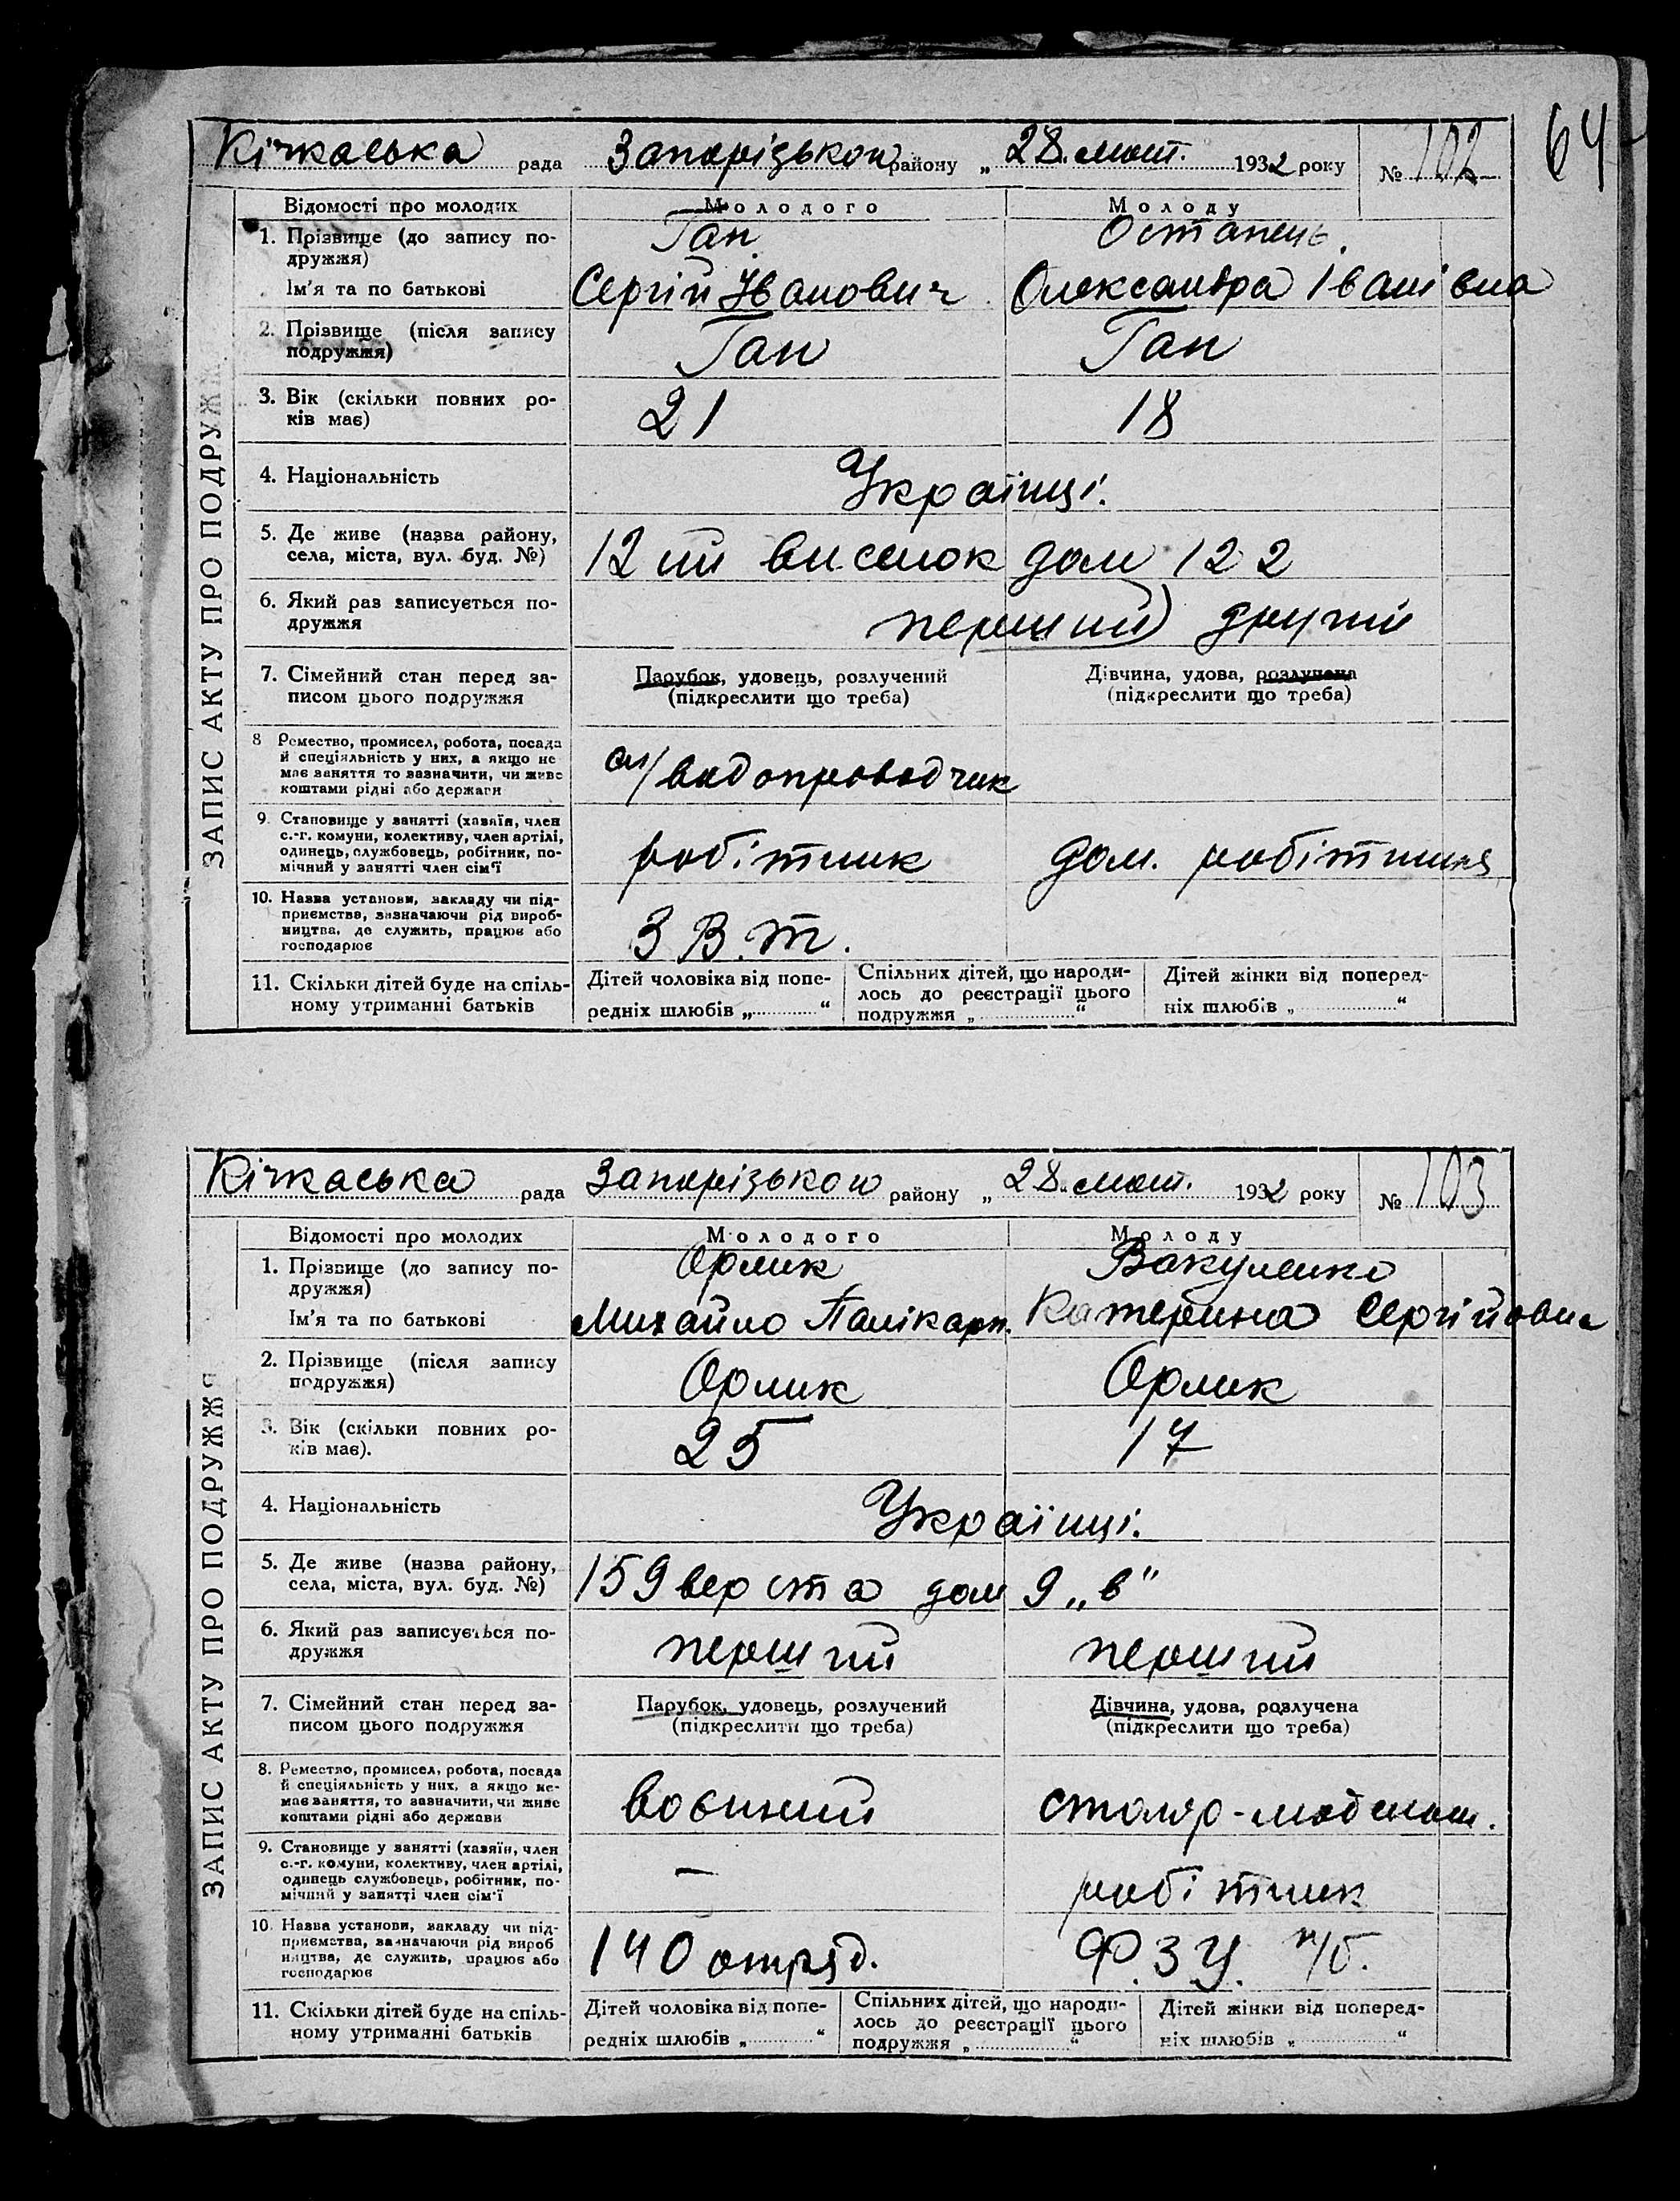 64
Кічкаська рада Запорізького району „ 28. лют. 1932 року № 102
ЗАПИС АКТУ ПРО ПОДРУЖ
Відомості про молодих Молодого Молоду
1. Прізвище (до запису по- Ган Остапець.
дружжя)
Ім'я та по батькові Сергій Іванович Олександра Іванівна
2. Прізвище (після запису
подружжя) Ган Ган
3. Вік (скільки повних ро- 21 18
ків має)
4. Національність Українці.
5. Де живе (назва району,
села, міста, вул. буд. №) 12 ий виселок дом 122
6. Який раз записується по- перший) другий
дружжя
7. Сімейний стан перед за- Парубок, удовець, розлучений Дівчина, удова, розлучена
писом цього подружжя (підкреслити що треба) (підкреслити що треба)
8 Ремество, промисел, робота, посада
й спеціяльність у них, а якщо не
має заняття то зазначити, чи живе
коштами рідні або держави сл/водопроводчик
9. Становище у занятті (хазяїн, член
с.-г. комуни, колективу, член артілі,
одинець, службовець, робітник, по- робітник дом. робітниця
мічний у занятті член сім'ї
10. Назва установи, закладу чи під-
приємства, зазначаючи рід вироб-
ництва, де служить, працює або З В. т.
господарює
11. Скільки дітей буде на спіль- Дітей чоловіка від попе- Спільних дітей, що народи- Дітей жінки від поперед-
ному утриманні батьків редніх шлюбів „ “ лось до реєстрації цього ніх шлюбів „ “
подружжя „ “
Кічкаська рада Запорізького району „ 28. лют. 1932 року № 103
ЗАПИС АКТУ ПРО ПОДРУЖЖЯ
Відомості про молодих Молодого Молоду
1. Прізвище (до запису по- Орлик Вакуленко
дружжя)
Ім'я та по батькові Михайло Полікарп. Катерина Сергійовна
2. Прізвище (після запису
подружжя) Орлик Орлик
3. Вік (скільки повних ро- 25 17
ків має).
4. Національність Українці.
5. Де живе (назва району,
села, міста, вул. буд. №) 159 верста дом 9 „в“
6. Який раз записується по- перший перший
дружжя
7. Сімейний стан перед за- Парубок, удовець, розлучений Дівчина, удова, розлучена
писом цього подружжя (підкреслити що треба) (підкреслити що треба)
8. Ремество, промисел, робота, посада
й спеціяльність у них, а якщо не-
має заняття, то зазначити, чи живе
коштами рідні або держави воєнний столяр-модельщ.
9. Становище у занятті (хазяїн, член
с.-г. комуни, колективу, член артілі,
одинець службовець, робітник, по- – робітник
мічний у занятті член сім'ї
10. Назва установи, закладу чи під-
приємства, зазначаючи рід вироб
ництва, де служить, працює або 140 отряд. Ф.З.У. п/б.
господарює
11. Скільки дітей буде на спіль- Дітей чоловіка від попе- Спільних дітей, що народи- Дітей жінки від поперед-
ному утриманні батьків редніх шлюбів „ “ лось до реєстрації цього ніх шлюбів „ “
подружжя „ “